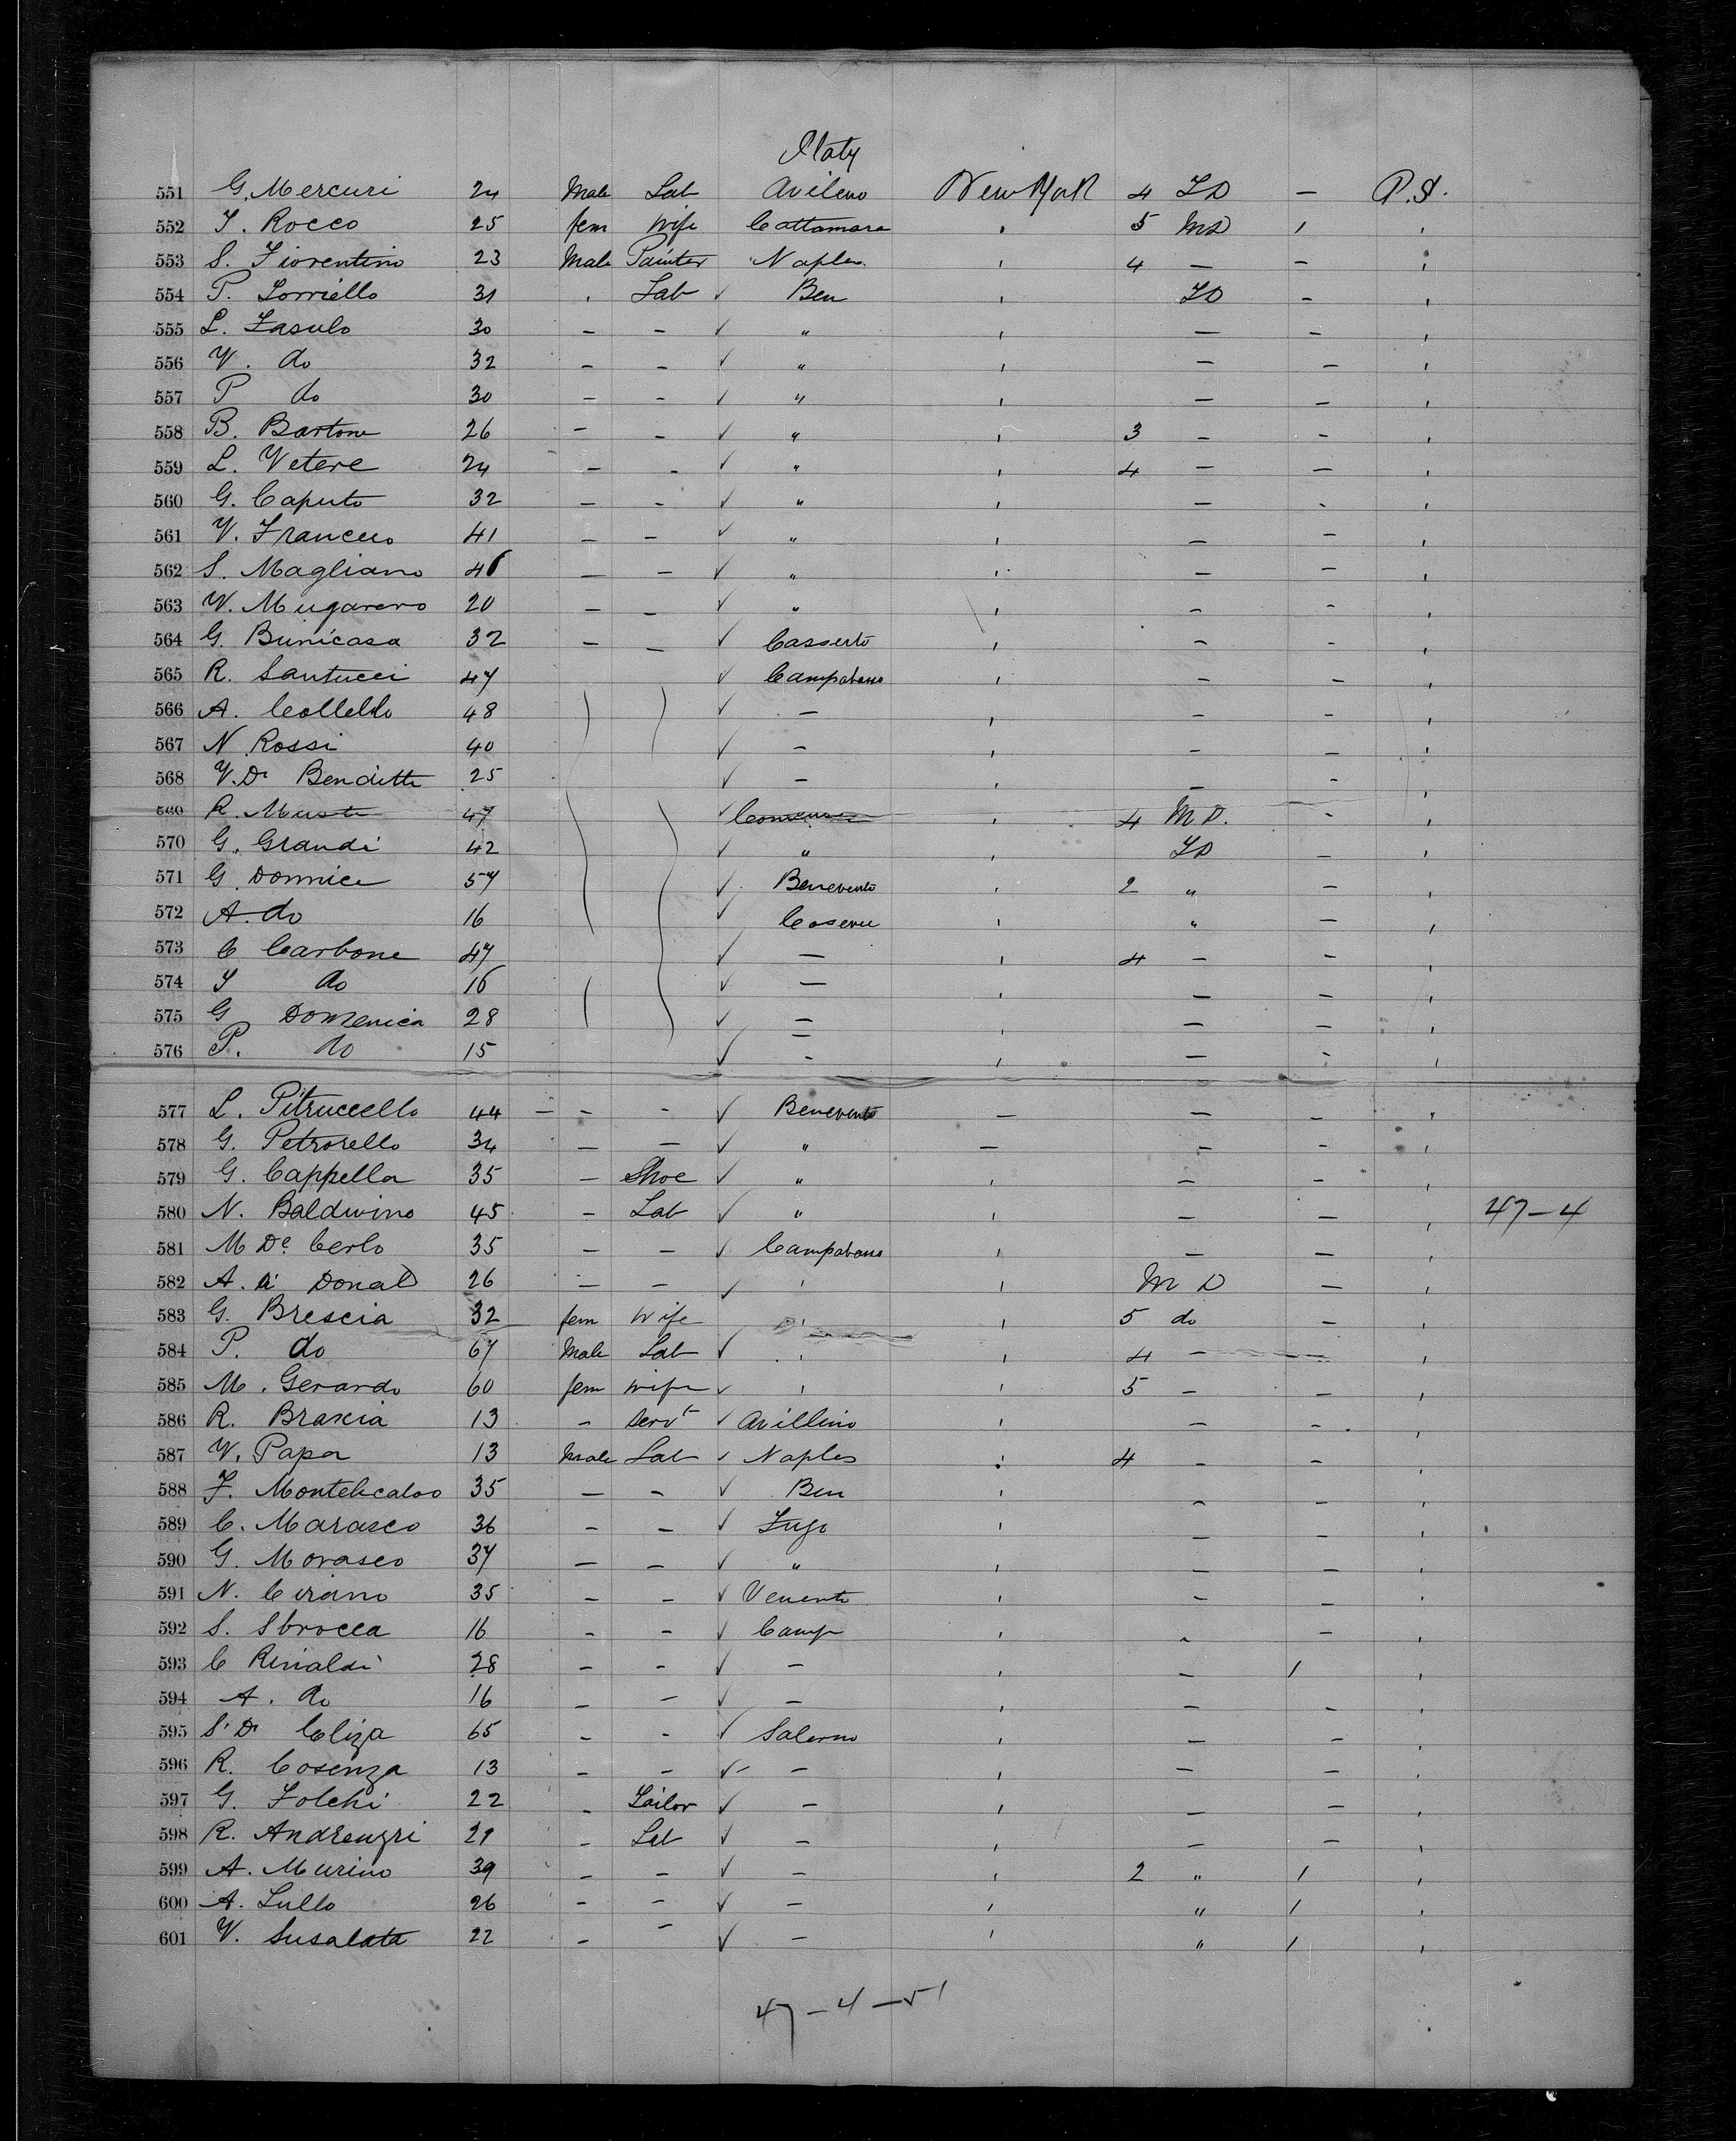 Italy
551 G. Mercuri 24 Male Lab Avileno New York 4 LD — P.S.
552 T. Rocco 25 fem wife Cattamare ' 5 MD 1 '
553 S. Fiorentino 23 Male Painter Naples ' 4 — — '
554 P. Lorriello 31 ' Lab ✓ Ben ' LD — '
555 L. Zasulo 30 — — ✓ " ' — — '
556 V. do 32 — — ✓ " ' — — '
557 P do 30 — — ✓ " ' — — '
558 B. Bartone 26 — — ✓ " ' 3 — — '
559 L. Vetere 24 — — ✓ " ' 4 — — '
560 G. Caputo 32 — — ✓ " ' — — '
561 V. 41 — — ✓ " ' — — '
562 S. Magliano 46 — — ✓ " ' — — '
563 V. Mugarero 20 — — ✓ " ' — — '
564 G. Bunicasa 32 — — ✓ Casserto ' — — '
565 R. Santucci 47 ✓ Campobasso ' — — '
566 A. 48 ✓ — ' — — '
567 N. Rossi 40 ✓ — ' — — '
568 V. Di Benditti 25 ✓ — ' — — '
569 R. Musti 47 ✓ ' 4 MD. — '
570 G. Grandi 42 ✓ " ' LD — '
571 G. Donnice 57 ✓ Benevento ' 2 " — '
572 A. do 16 ✓ ' " — '
573 C Carbone 47 ✓ — ' 4 — — '
574 S do 16 ✓ — ' — — '
575 G Domenica 28 ✓ — ' — — '
576 P. do 15 ✓ — ' — — '
577 L. Pitruccello 44 — — — ✓ Benevento — — — '
578 G. Petrorello 34 — — ✓ " — — — '
579 G. Cappella 35 — Shoe ✓ " ' — — '
580 N. Baldwino 45 — Lab ✓ " ' — — ' 47–4
581 M De Cerlo 35 — — ✓ Campobasso ' — — '
582 A. di Donal 26 — — ✓ ' ' MD — '
583 G. Brescia 32 fem wife ' ' 5 do — '
584 P. do 67 Male Lab ✓ ' ' 4 — — '
585 M. Gerardo 60 fem wife ✓ ' ' 5 — — '
586 R. Brascia 13 — servt ✓ Avillino ' — — '
587 V. Papa 13 Male Lab ✓ Naples ' 4 — — '
588 F. 35 — — ✓ Ben ' — — '
589 C. Marasco 36 — — ✓ ' — — '
590 G. Morasco 37 — — ✓ " ' — — '
591 N. Cirano 35 — — ✓ Venento ' — — '
592 S. Sbrocca 16 — — ✓ Camp ' — — '
593 C Rinaldi 28 — — ✓ — ' — 1 '
594 A. do 16 — — ✓ — ' — — '
595 S. Di Eliza 65 — — ✓ Salerno ' — — '
596 R. Cosenza 13 — — ✓ — ' — — '
597 G. Folchi 22 — Tailor ✓ — ' — — '
598 R. Andreuzri 29 — Lab ✓ — ' — — '
599 A. Murino 39 — — ✓ — ' 2 " 1 '
600 A. Lullo 26 — — ✓ — ' " 1 '
601 V. Susalata 22 — — ✓ — ' " 1 '
47–4–51